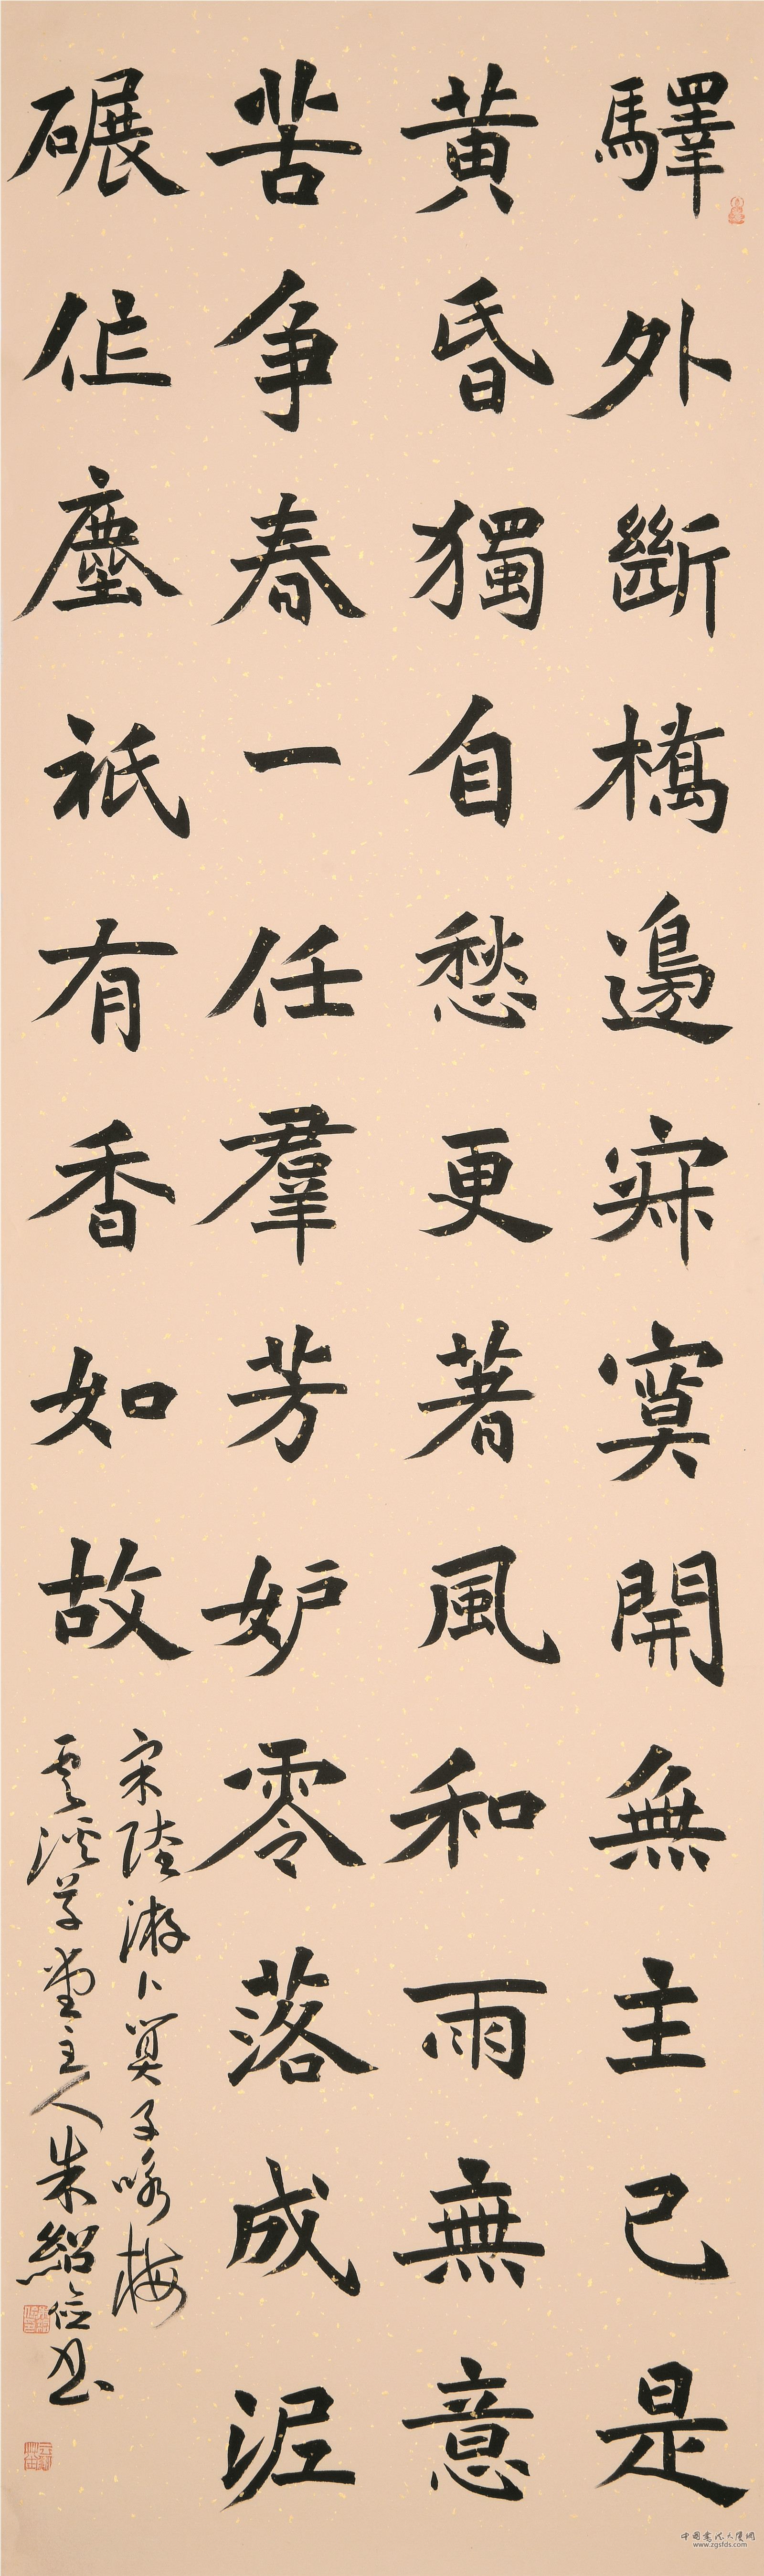 驛外斷橋邊寂寞開無主已是
黄昏獨自愁更著風和雨無意
苦争春一任羣芳妒零落成泥
碾作塵祇有香如故
宋陸游卜算子咏梅
雲溪草堂主人朱紹書
www.zgsfds.com